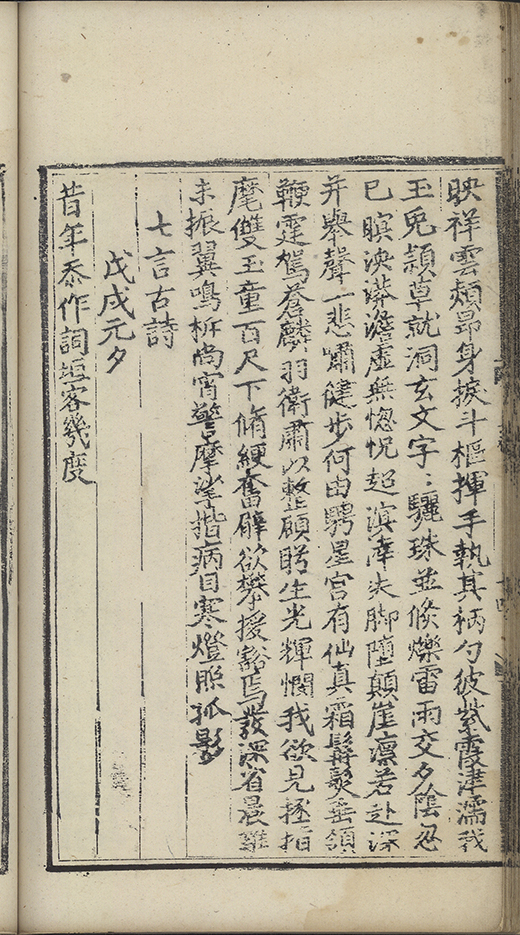 映祥雲頰昂身披斗樞揮手執其柄勺彼紫霞津濡我
玉兔頴草就洞玄文字〻驪珠並倏爍雷雨交夕陰忽
已瞑泱漭澹虛無惚怳超溟涬失脚墮顛崖凛若赴深
井舉聲一悲嘯健步何由騁星宮有仙真霜髯髮垂領
鞭霆駕蒼麟羽衛肅以整顧眄生光輝憫我欲見拯指
麾雙玉童百尺下脩綆奮臂欲攀援豁焉發深省晨雞
未振翼鳴柝尚宵警摩挲揩病目寒燈照孤影
七言古詩
戊戌元夕
昔年忝作詞垣客幾度